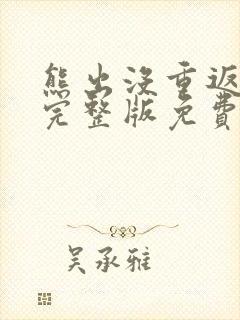 熊出沒重返
完整版免費
吴承雅